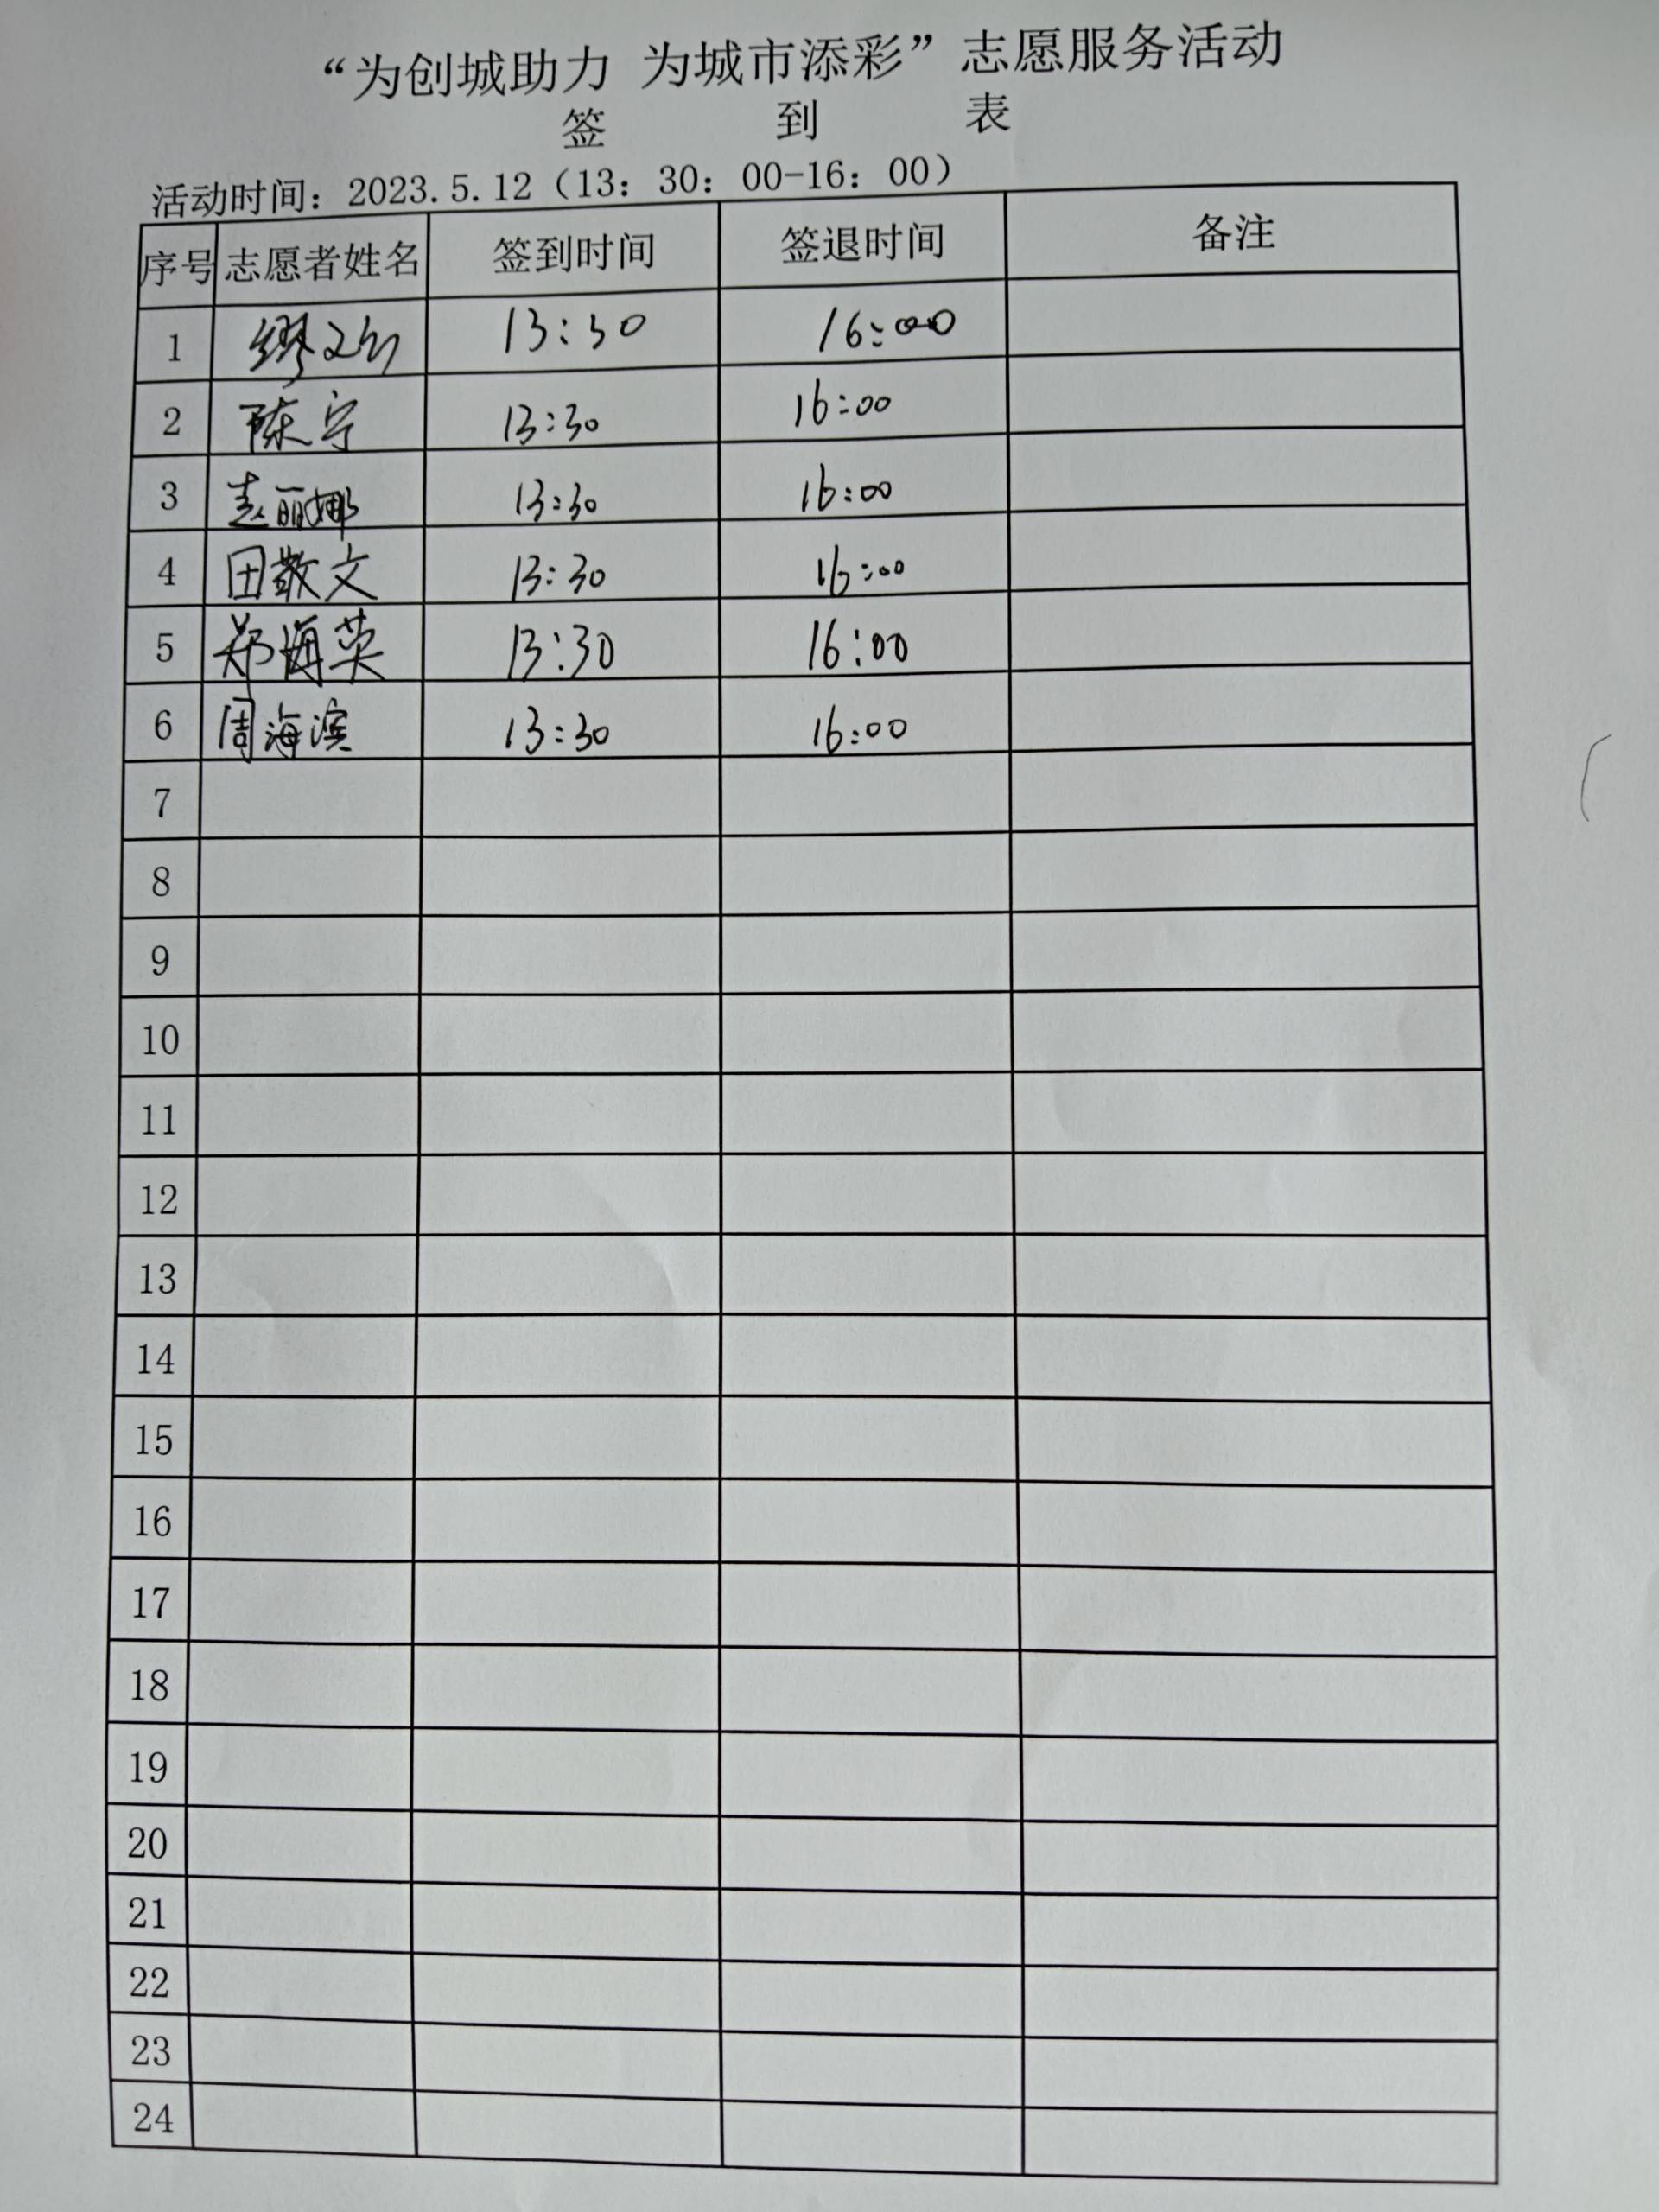 “为创城助力 为城市添彩”志愿服务活动
签 到 表
活动时间：2023.5.12（13：30：00-16：00）
序号 志愿者姓名 签到时间 签退时间 备注
1 缪文 13:30 16:00
2 陈宁 13:30 16:00
3 赵丽娜 13:30 16:00
4 田敬文 13:30 16:00
5 郑海英 13:30 16:00
6 周海滨 13:30 16:00
7
8
9
10
11
12
13
14
15
16
17
18
19
20
21
22
23
24